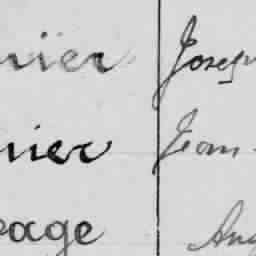 nier Josep
nier Jean
page Aug